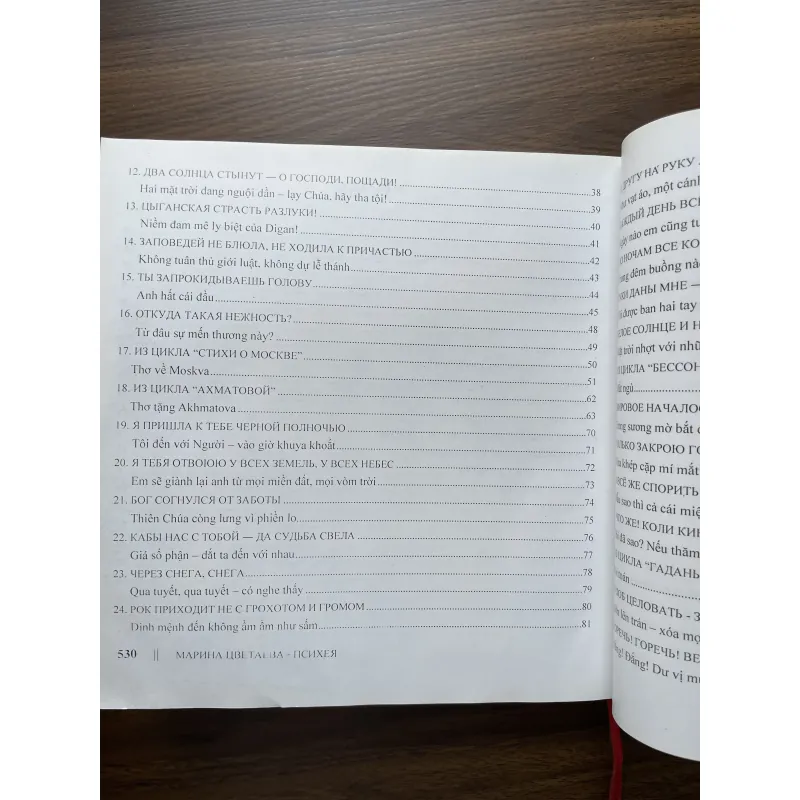 12. ДВА СОЛНЦА СТЫНУТ — О ГОСПОДИ, ПОЩАДИ!........38
Hai mặt trời đang nguội dần – lạy Chúa, hãy tha tội!........39
13. ЦЫГАНСКАЯ СТРАСТЬ РАЗЛУКИ!........40
Niềm đam mê ly biệt của Digan!........41
14. ЗАПОВЕДЕЙ НЕ БЛЮЛА, НЕ ХОДИЛА К ПРИЧАСТЬЮ........42
Không tuân thủ giới luật, không dự lễ thánh........43
15. ТЫ ЗАПРОКИДЫВАЕШЬ ГОЛОВУ........44
Anh hất cái đầu........45
16. ОТКУДА ТАКАЯ НЕЖНОСТЬ?........48
Từ đâu sự mến thương này?........49
17. ИЗ ЦИКЛА “СТИХИ О МОСКВЕ”........50
Thơ về Moskva........51
18. ИЗ ЦИКЛА “АХМАТОВОЙ“........62
Thơ tặng Akhmatova........63
19. Я ПРИШЛА К ТЕБЕ ЧЕРНОЙ ПОЛНОЧЬЮ........70
Tôi đến với Người – vào giờ khuya khoắt........71
20. Я ТЕБЯ ОТВОЮЮ У ВСЕХ ЗЕМЕЛЬ, У ВСЕХ НЕБЕС........72
Em sẽ giành lại anh từ mọi miền đất, mọi vòm trời........73
21. БОГ СОГНУЛСЯ ОТ ЗАБОТЫ........74
Thiên Chúa còng lưng vì phiền lo........75
22. КАБЫ НАС С ТОБОЙ — ДА СУДЬБА СВЕЛА........76
Giá số phận – dắt ta đến với nhau........77
23. ЧЕРЕЗ СНЕГА, СНЕГА........78
Qua tuyết, qua tuyết – có nghe thấy........79
24. РОК ПРИХОДИТ НЕ С ГРОХОТОМ И ГРОМОМ........80
Định mệnh đến không ầm ầm như sấm........81
530 || МАРИНА ЦВЕТАЕВА - ПСИХЕЯ
ДРУГУ НА РУКУ
vạt áo, một cánh
ДЕНЬ ВСЕ
nào em cũng
НОЧАМ ВСЕ
đêm buồng
ДАНЫ МНЕ —
được ban hai tay
СОЛНЦЕ И
trời nhợt với
ЦИКЛА “БЕССОН
ngủ
НАЧАЛОС
sương mờ bắt
ЗАКРОЮ
khép cặp mí mắt
ЖЕ СПОРИТЬ
sao thì cả cái
ЖЕ! КОЛИ
đã sao? Nếu thăm
ЦИКЛА “ГАДАНЬ
ЦЕЛОВАТЬ -
lên trán – xóa
ГОРЕЧЬ!
Đắng! Dư vị